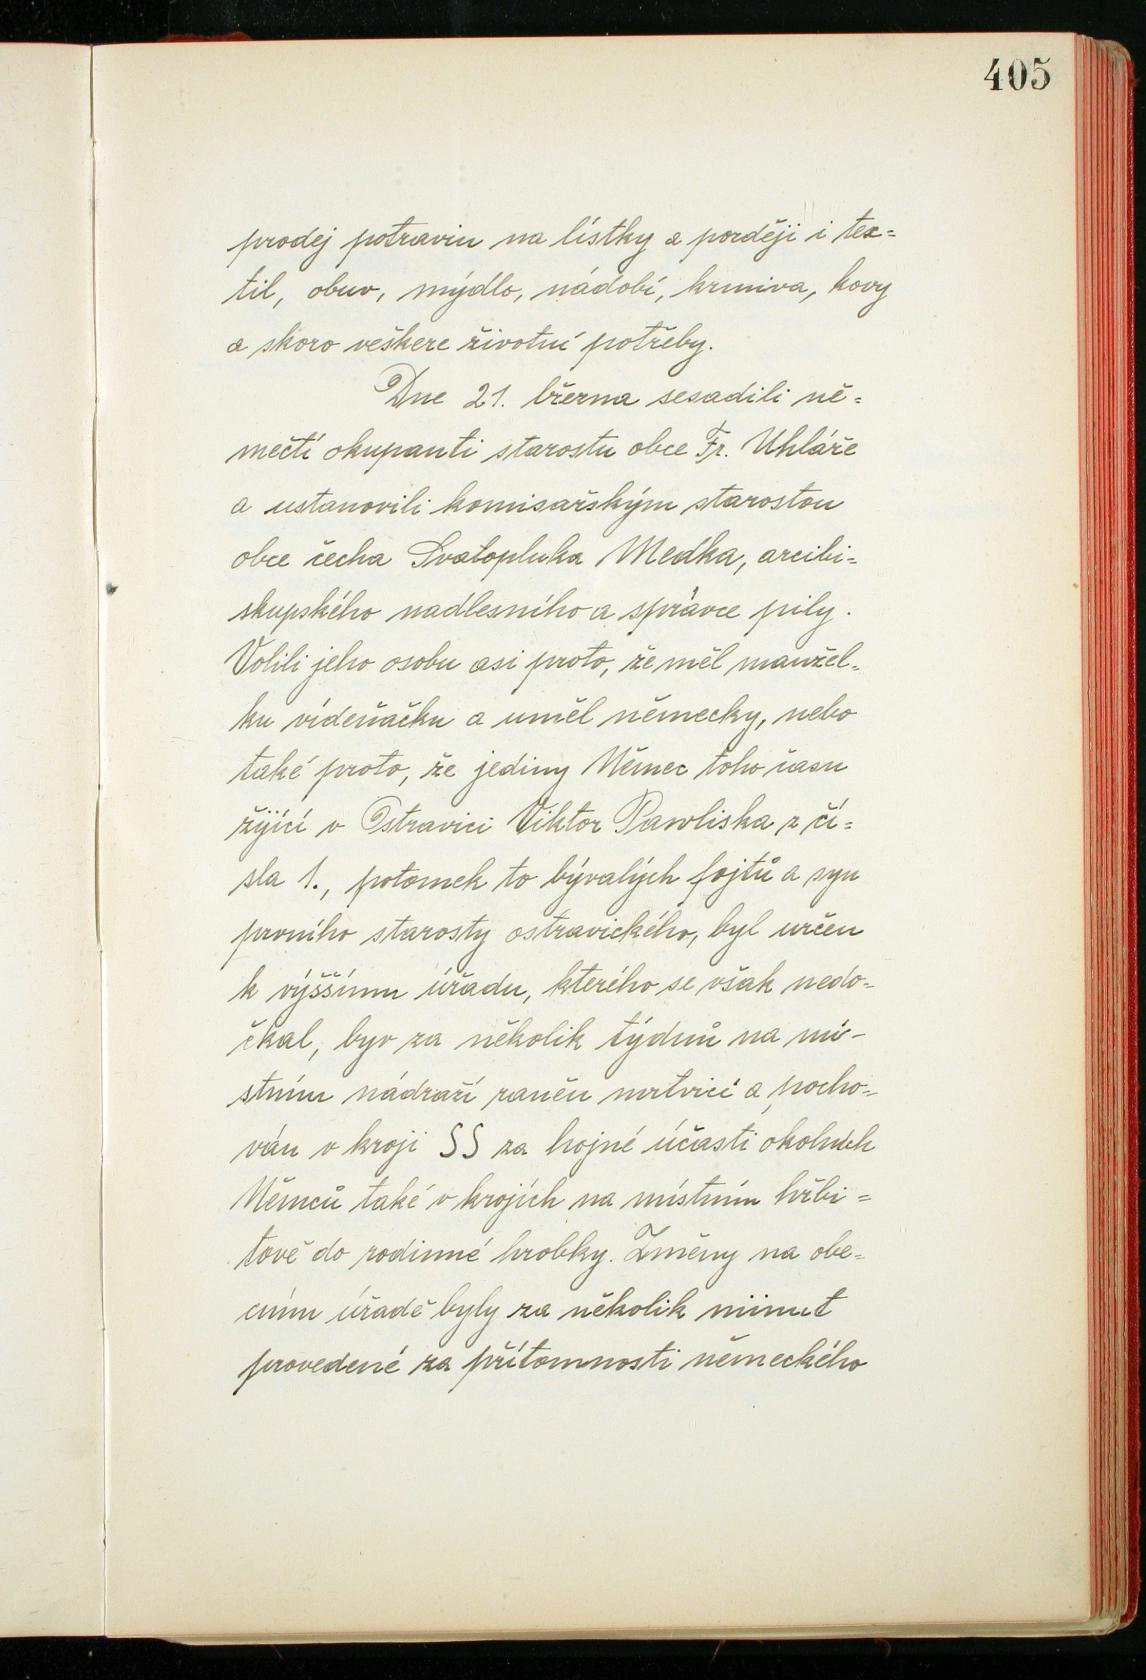 405
prodej potravin na lístky a později i tex=
til, obuv, mýdlo, nádobí, krmiva, kovy
a skoro veškere životní potřeby.
Dne 21. března sesadili ně=
mečtí okupanti starostu obce Fr. Uhláře
a ustanovili komisařským starostou
obce čecha Svatopluka Medka, arcibi=
skupského nadlesního a správce pily.
Volili jeho osobu asi proto, že měl manžel=
ku vídeňačku a uměl německy, nebo
také proto, že jediny Němec toho času
žijící v Ostravici Viktor Pawliska z čí=
sla 1., potomek to bývalých fojtů a syn
prvního starosty ostravického, byl určen
k výššímu úřadu, kterého se však nedo=
čkal, byv za několik týdnů na mí-
stním nádraží raněn mrtvicí a pocho=
ván v kroji SS za hojné účasti okolních
Němců také v krojích na místním hřbi=
tově do rodinné hrobky. Změny na obe=
cním úřadě byly za několik minut
provedené za přítomnosti německého